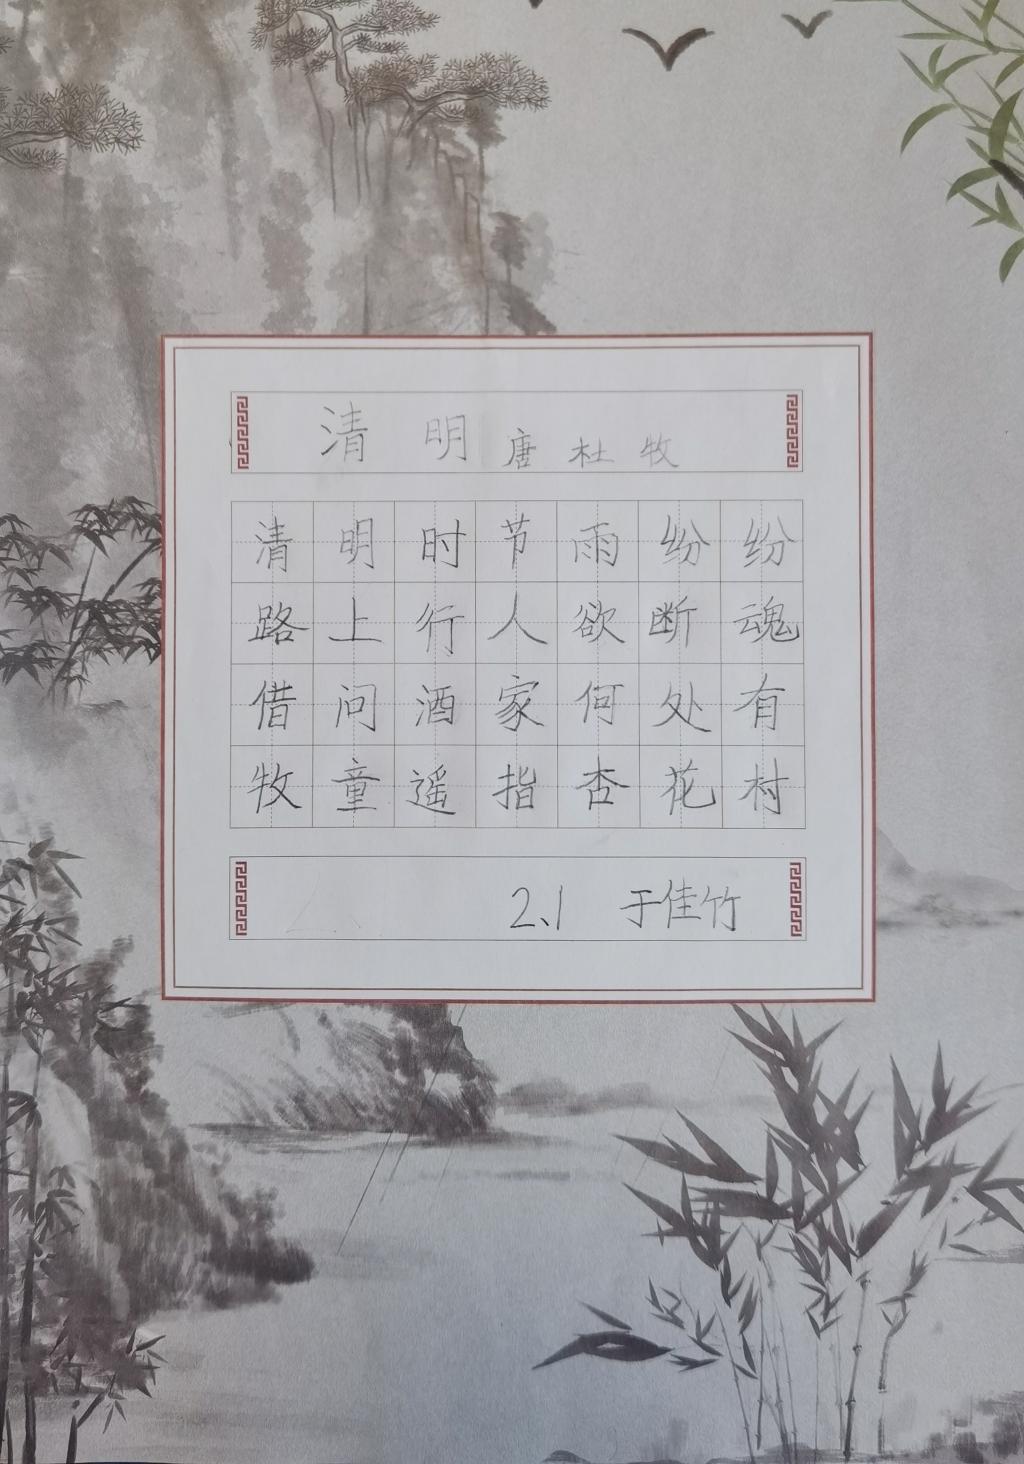 清明 唐 杜牧
清明时节雨纷纷
路上行人欲断魂
借问酒家何处有
牧童遥指杏花村
2、1 于佳竹